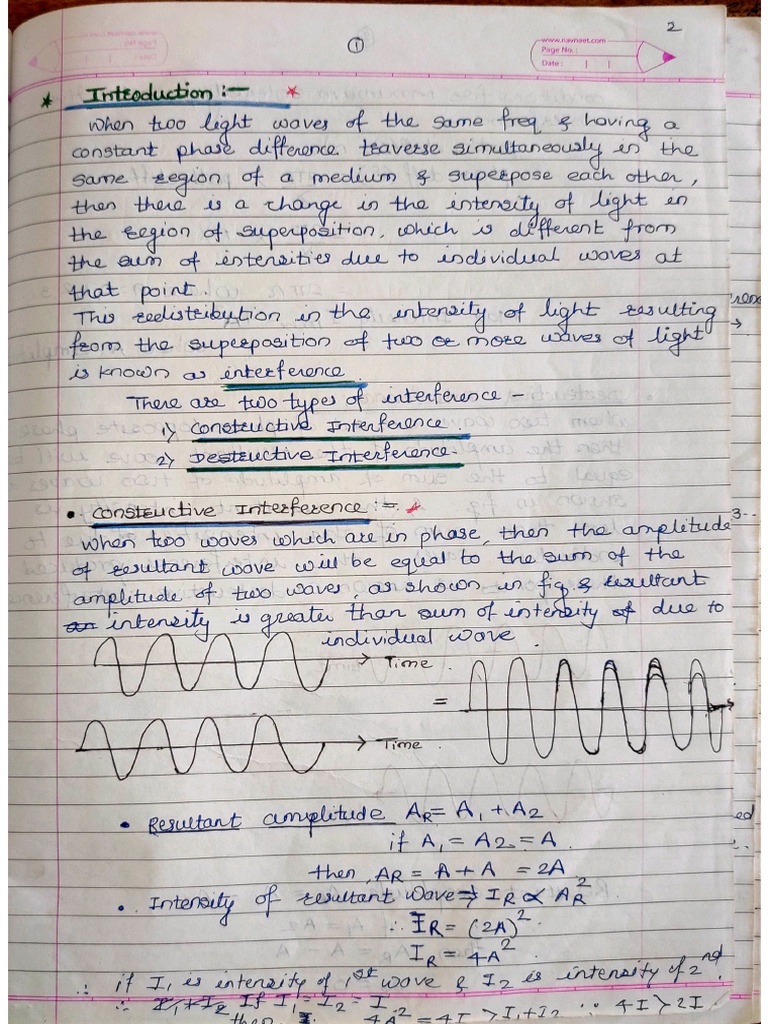 2
①
www.navneet.com
Page No.:
Date:
* Introduction :- *
When two light waves of the same freq & having a
constant phase difference traverse simultaneously in the
same region of a medium & superpose each other,
then there is a change in the intensity of light in
the region of superposition, which is different from
the sum of intensities due to individual waves at
that point.
This redistribution in the intensity of light resulting
from the superposition of two or more waves of light
is known as interference.
There are two types of interference -
1) Constructive Interference.
2) Destructive Interference.
• Constructive Interference :- *
When two waves which are in phase, then the amplitude
of resultant wave will be equal to the sum of the
amplitude of two waves, as shown in fig & resultant
intensity is greater than sum of intensity of due to
individual wave.
Time.
=
Time.
• Resultant amplitude A_R = A₁ + A₂
if A₁ = A₂ = A.
then, A_R = A + A = 2A
• Intensity of resultant wave ⇒ I_R ∝ A_R²
∴ I_R = (2A)²
I_R = 4A²
∴ if I₁ is intensity of 1st wave & I₂ is intensity of 2nd
∴ I₁+I₂ If I₁ = I₂ = I
then 4A² = 4I > I₁+I₂ ∵ 4I > 2I.